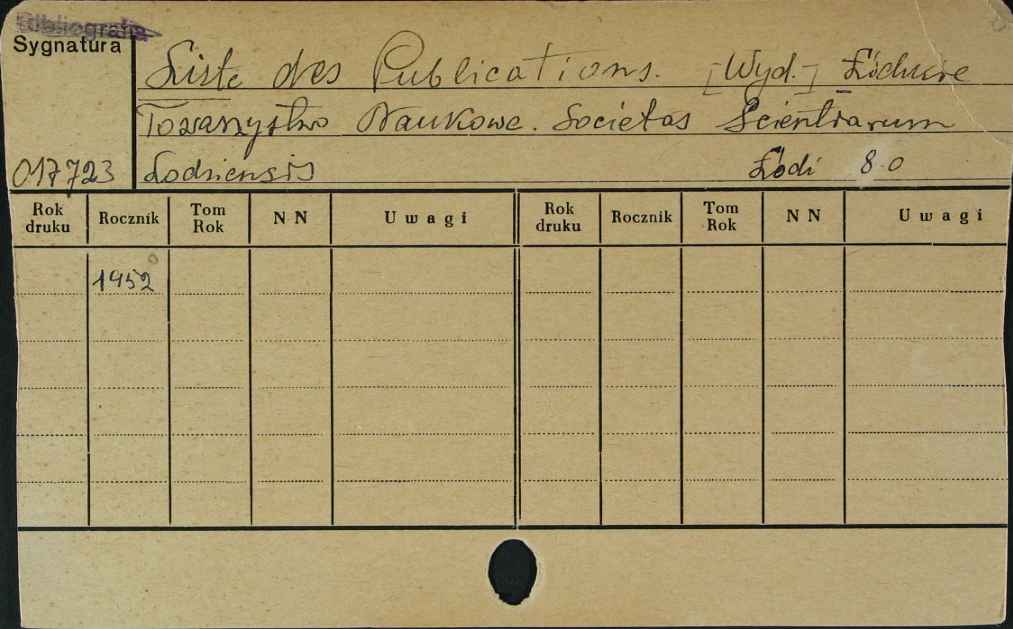 Bibliografia
Sygnatura
Liste des Publications. [Wyd.] Łódzkie
Towarzystwo Naukowe. Societas Scientiarum
017723 Lodziensis Łódź 8-o
Rok druku Rocznik Tom Rok N N Uwagi Rok druku Rocznik Tom Rok N N Uwagi
1952